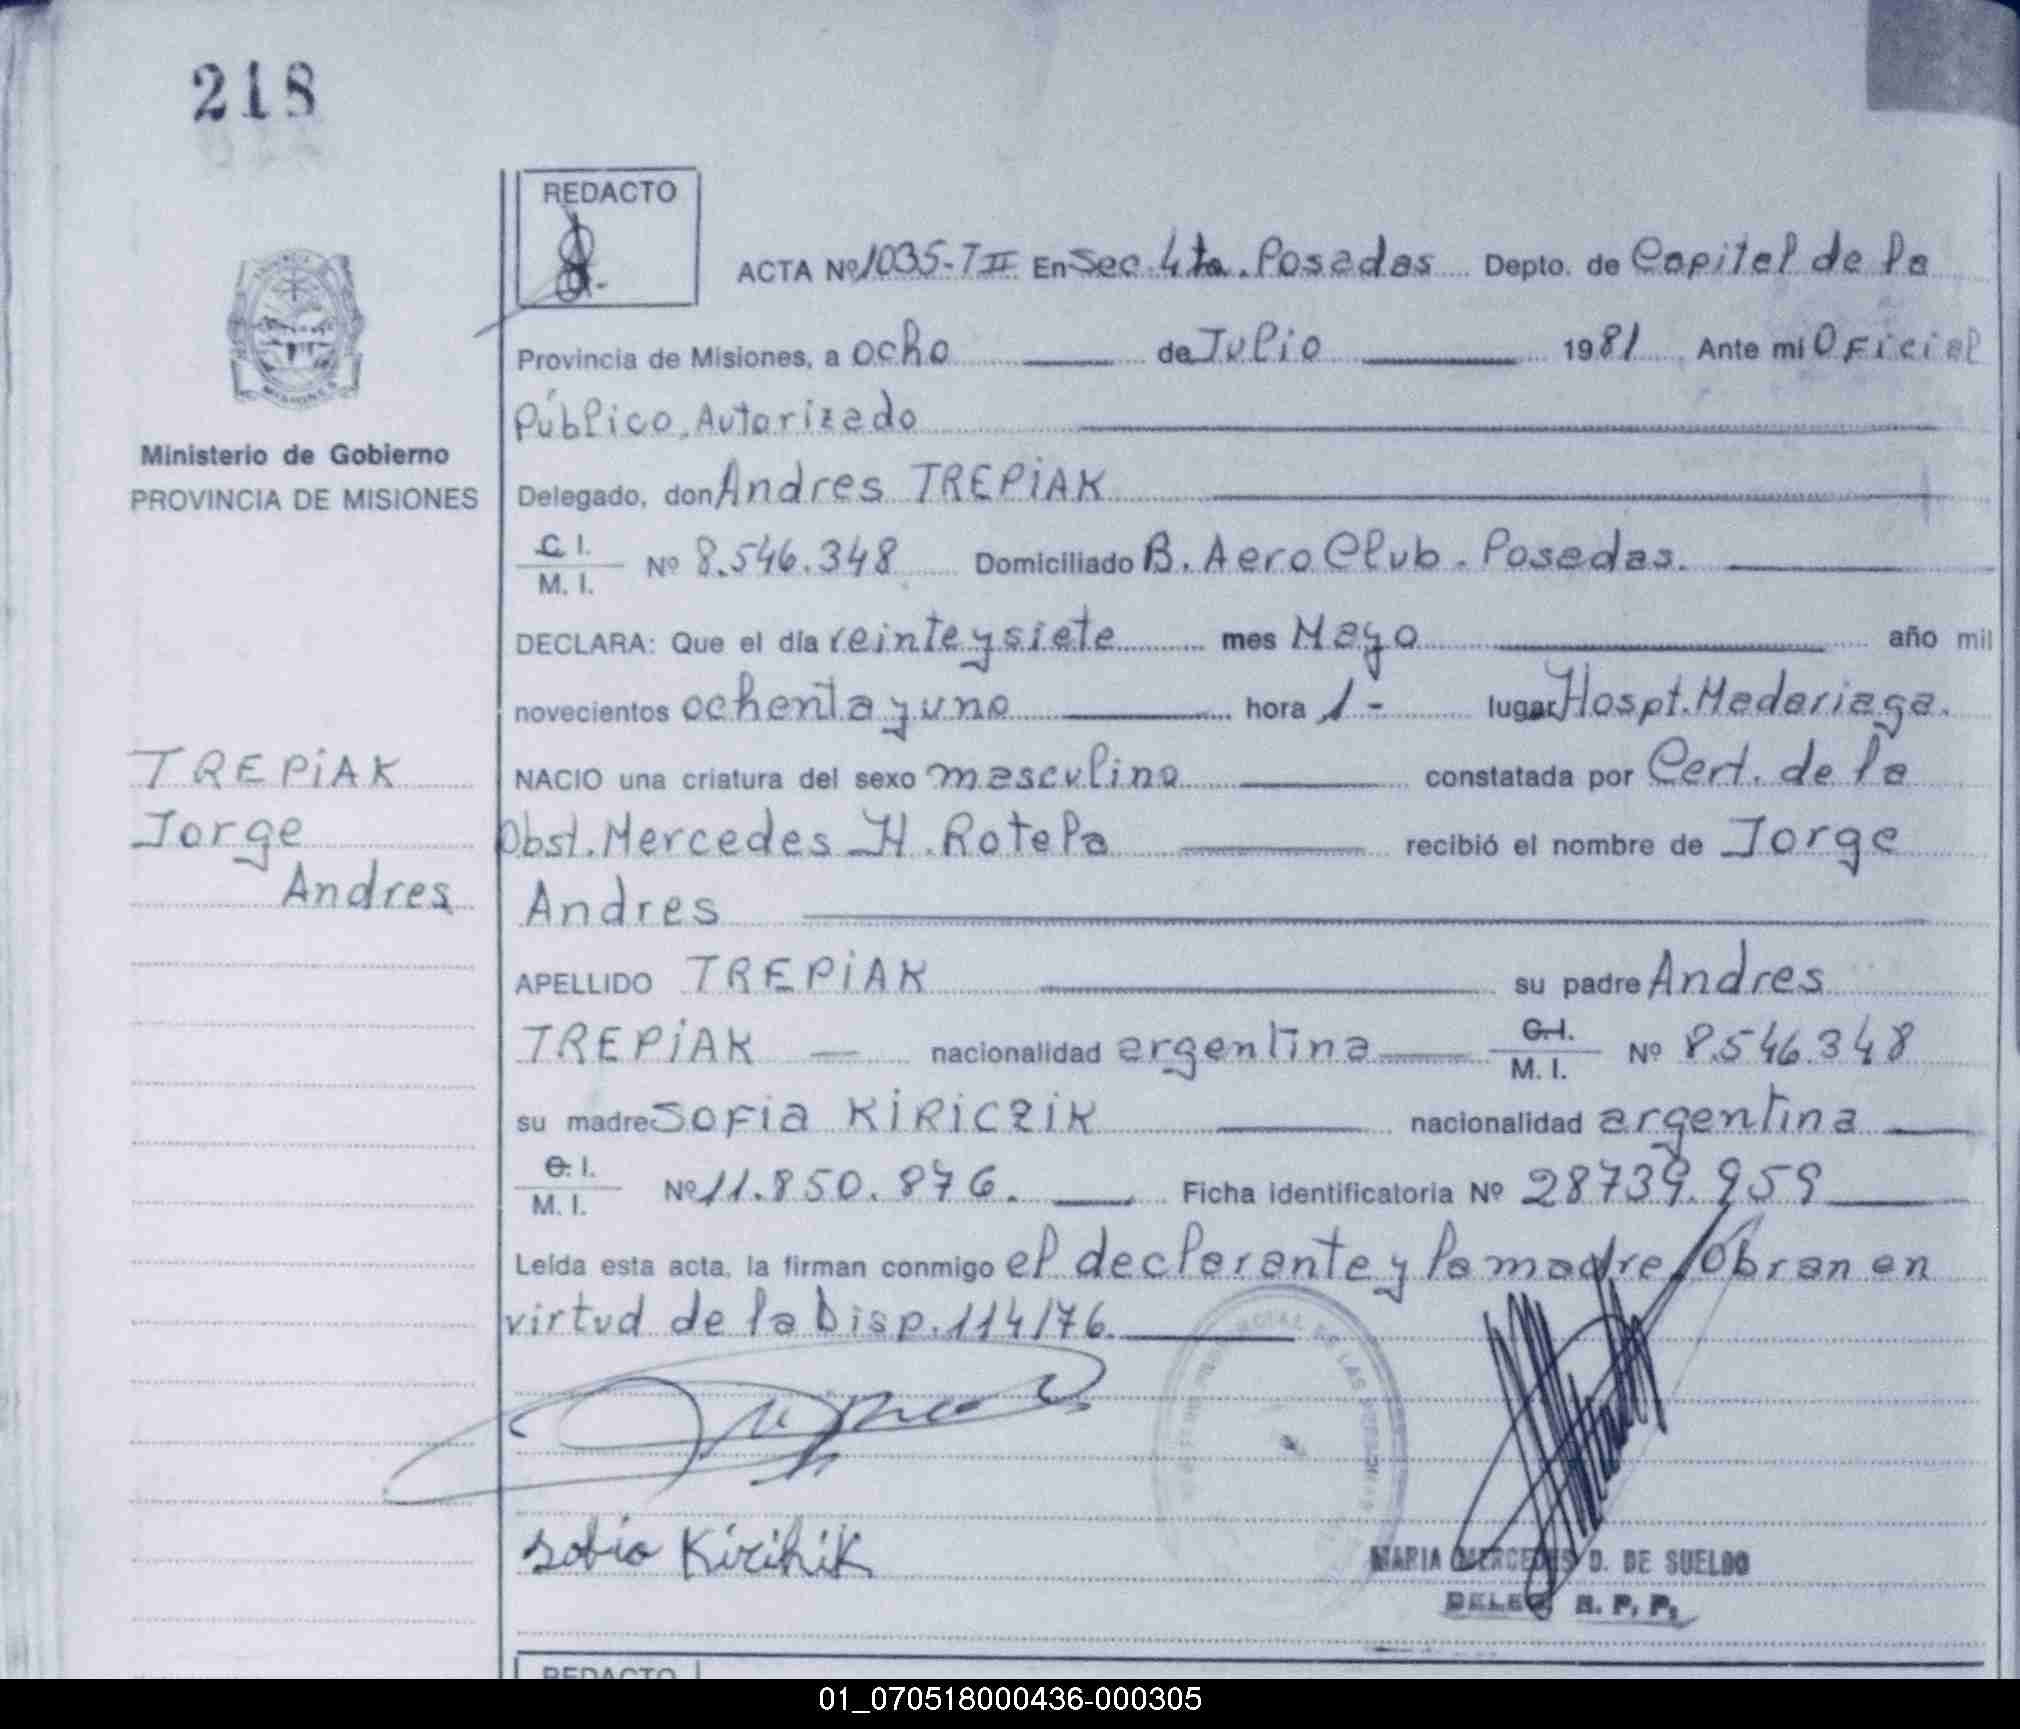 218
REDACTO
ACTA Nº 1035-T II En Sec. 4ta. Posadas Depto. de Capital de la
Provincia de Misiones, a ocho de Julio 1981 Ante mi Oficial
Público Autorizado
Ministerio de Gobierno
PROVINCIA DE MISIONES
Delegado, don Andres TREPiAK
C. I. M. I. Nº 8.546.348 Domiciliado B. Aero Club. Posadas.
DECLARA: Que el día veinte y siete mes Mayo año mil
novecientos ochenta y uno hora 1 - lugar Hospt. Madariaga.
TREPiAK
Jorge
Andres
NACIO una criatura del sexo masculino constatada por Cert. de la
Obst. Mercedes H. Rotela recibió el nombre de Jorge
Andres
APELLIDO TREPiAK su padre Andres
TREPiAK nacionalidad argentina C. I. M. I. Nº 8.546.348
su madre SOFia KiRiCZiK nacionalidad argentina
C. I. M. I. Nº 11.850.876. Ficha identificatoria Nº 28739.959
Leída esta acta, la firman conmigo el declarante y la madre/Obran en
virtud de la Disp. 114/76.
Kirihik
MARIA MERCEDES D. DE SUELDO
DELEG. R. P. P.
REDACTO
01_070518000436-000305